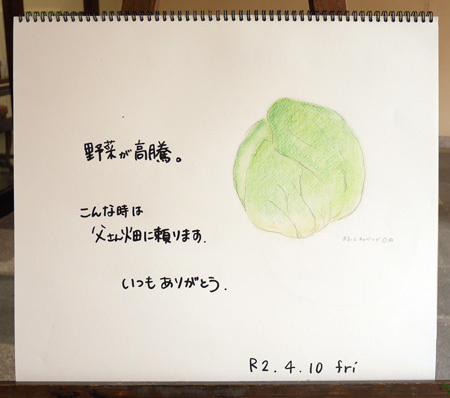 野菜が高騰。
こんな時は
父さん畑に頼ります。
いつもありがとう.
R2.4.10 fri